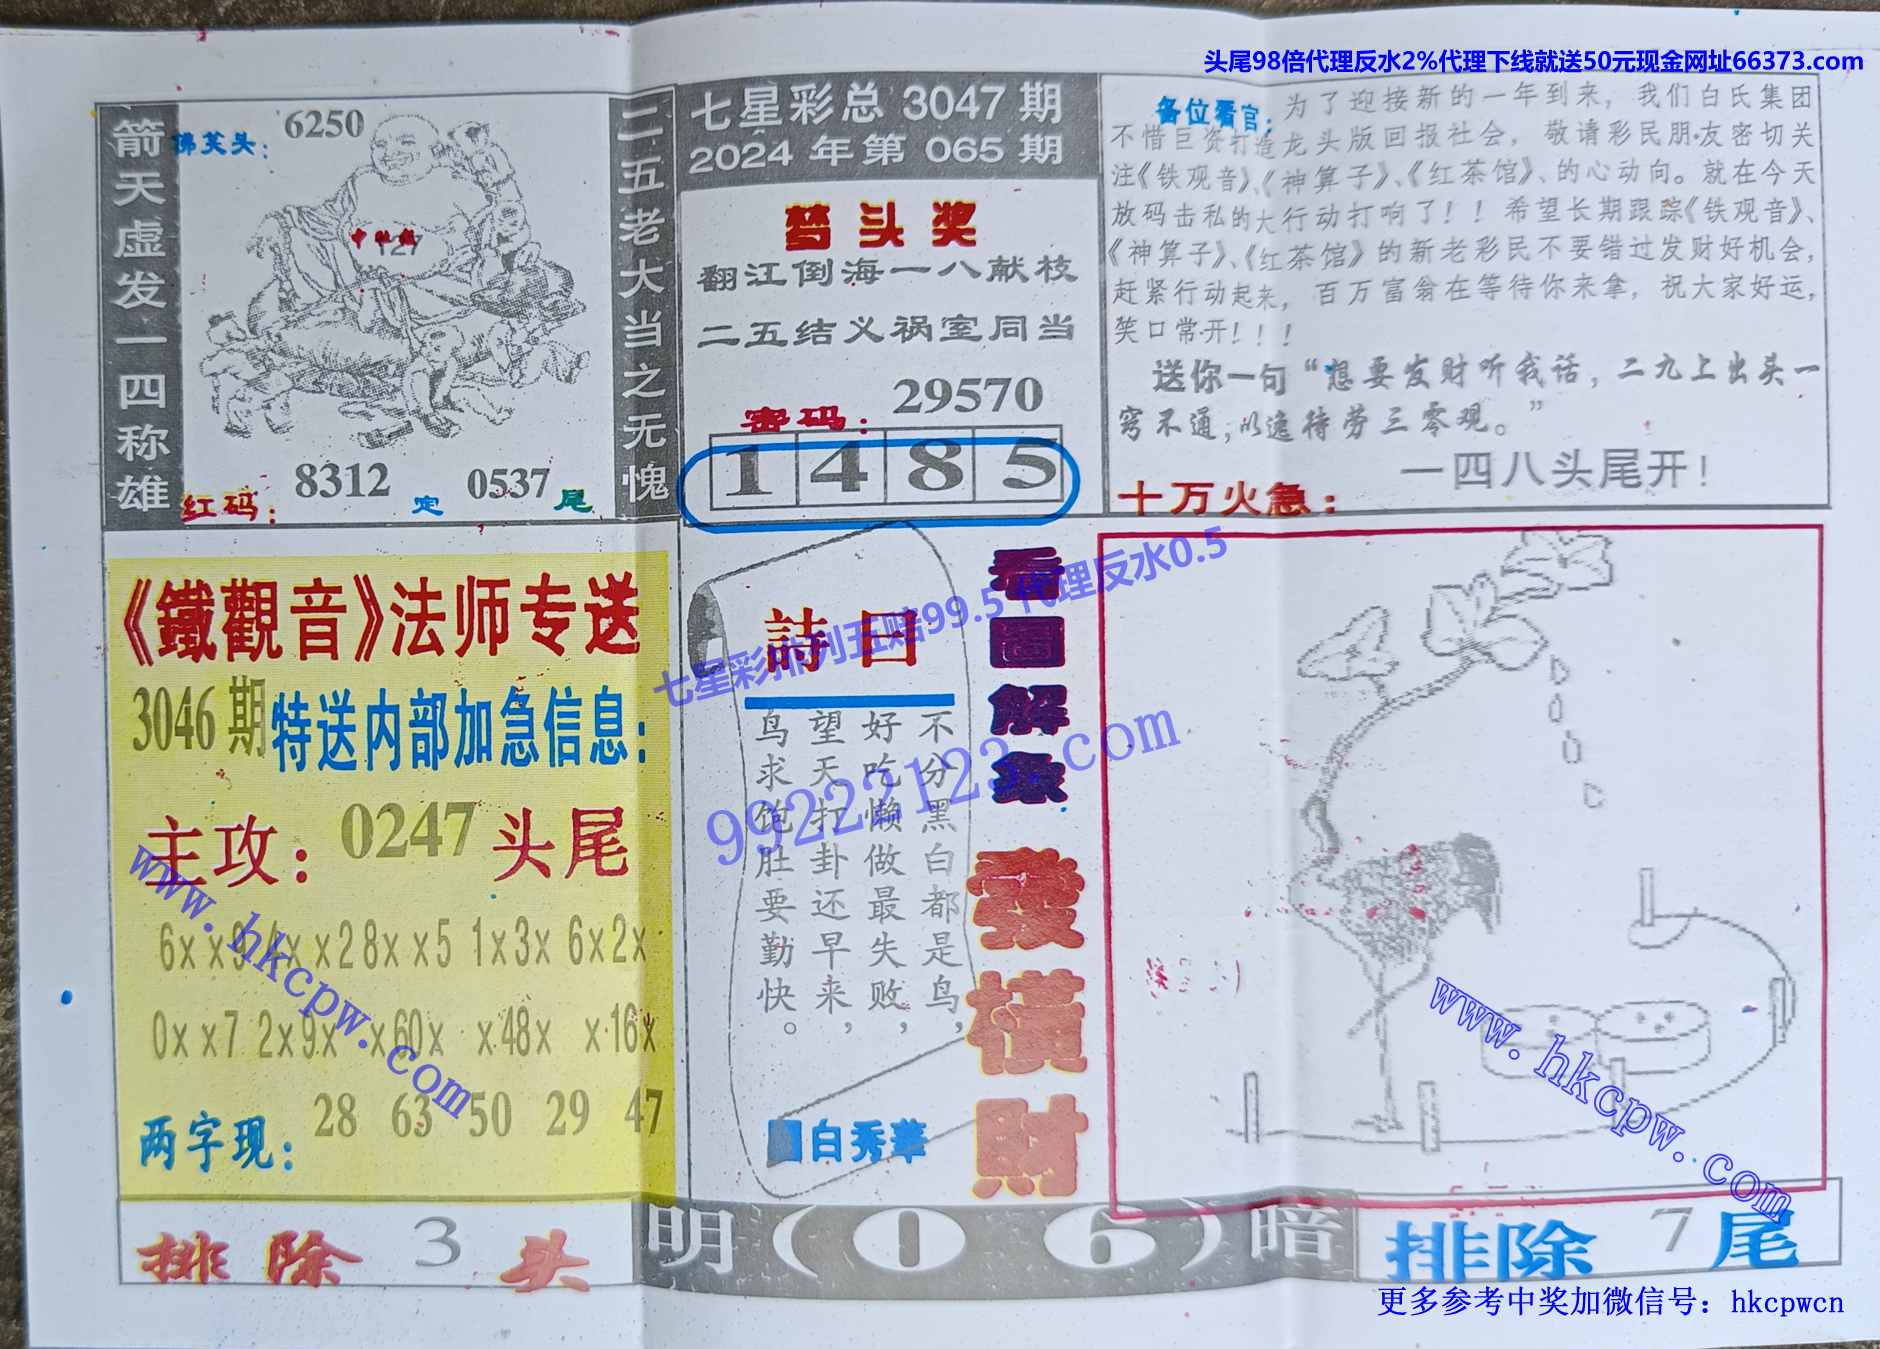 头尾98倍代理反水2%代理下线就送50元现金网址66373.com
箭天虚发一四称雄
佛笑头：
6250
127
红码：
8312
定
0537
尾
二五老大当之无愧
七星彩总 3047 期
2024 年第 065 期
梦头奖
翻江倒海一八献枝
二五结义祸室同当
密码：
29570
1 4 8 5
各位看官：为了迎接新的一年到来，我们白氏集团
不惜巨资打造龙头版回报社会，敬请彩民朋·友密切关
注《铁观音》、《神算子》、《红茶馆》、的心动向。就在今天
放码击私的大行动打响了！！希望长期跟踪《铁观音》、
《神算子》、《红茶馆》的新老彩民不要错过发财好机会，
赶紧行动起来，百万富翁在等待你来拿，祝大家好运，
笑口常开！！！
送你一句“想要发财听我话，二九上出头一
窍不通；以逸待劳三零观。”
十万火急：
一四八头尾开！
《鐵觀音》法师专送
3046期
特送内部加急信息：
主攻：
0247
头尾
6xx9 4xx2 8xx5 1x3x 6x2x
0xx7 2x9x x60x x48x x16x
两字现：
28 63 50 29 47
詩曰
不分黑白都是鸟，
好吃懒做最失败，
望天打卦还早来，
鸟求饱肚要勤快。
白秀華
看圖解象
發橫財
七星彩排列五赔99.5 代理反水0.5
99222123.com
www.hkcpw.com
www.hkcpw.com
排除 3 头
明（0 6）暗
排除 7 尾
更多参考中奖加微信号：hkcpwcn